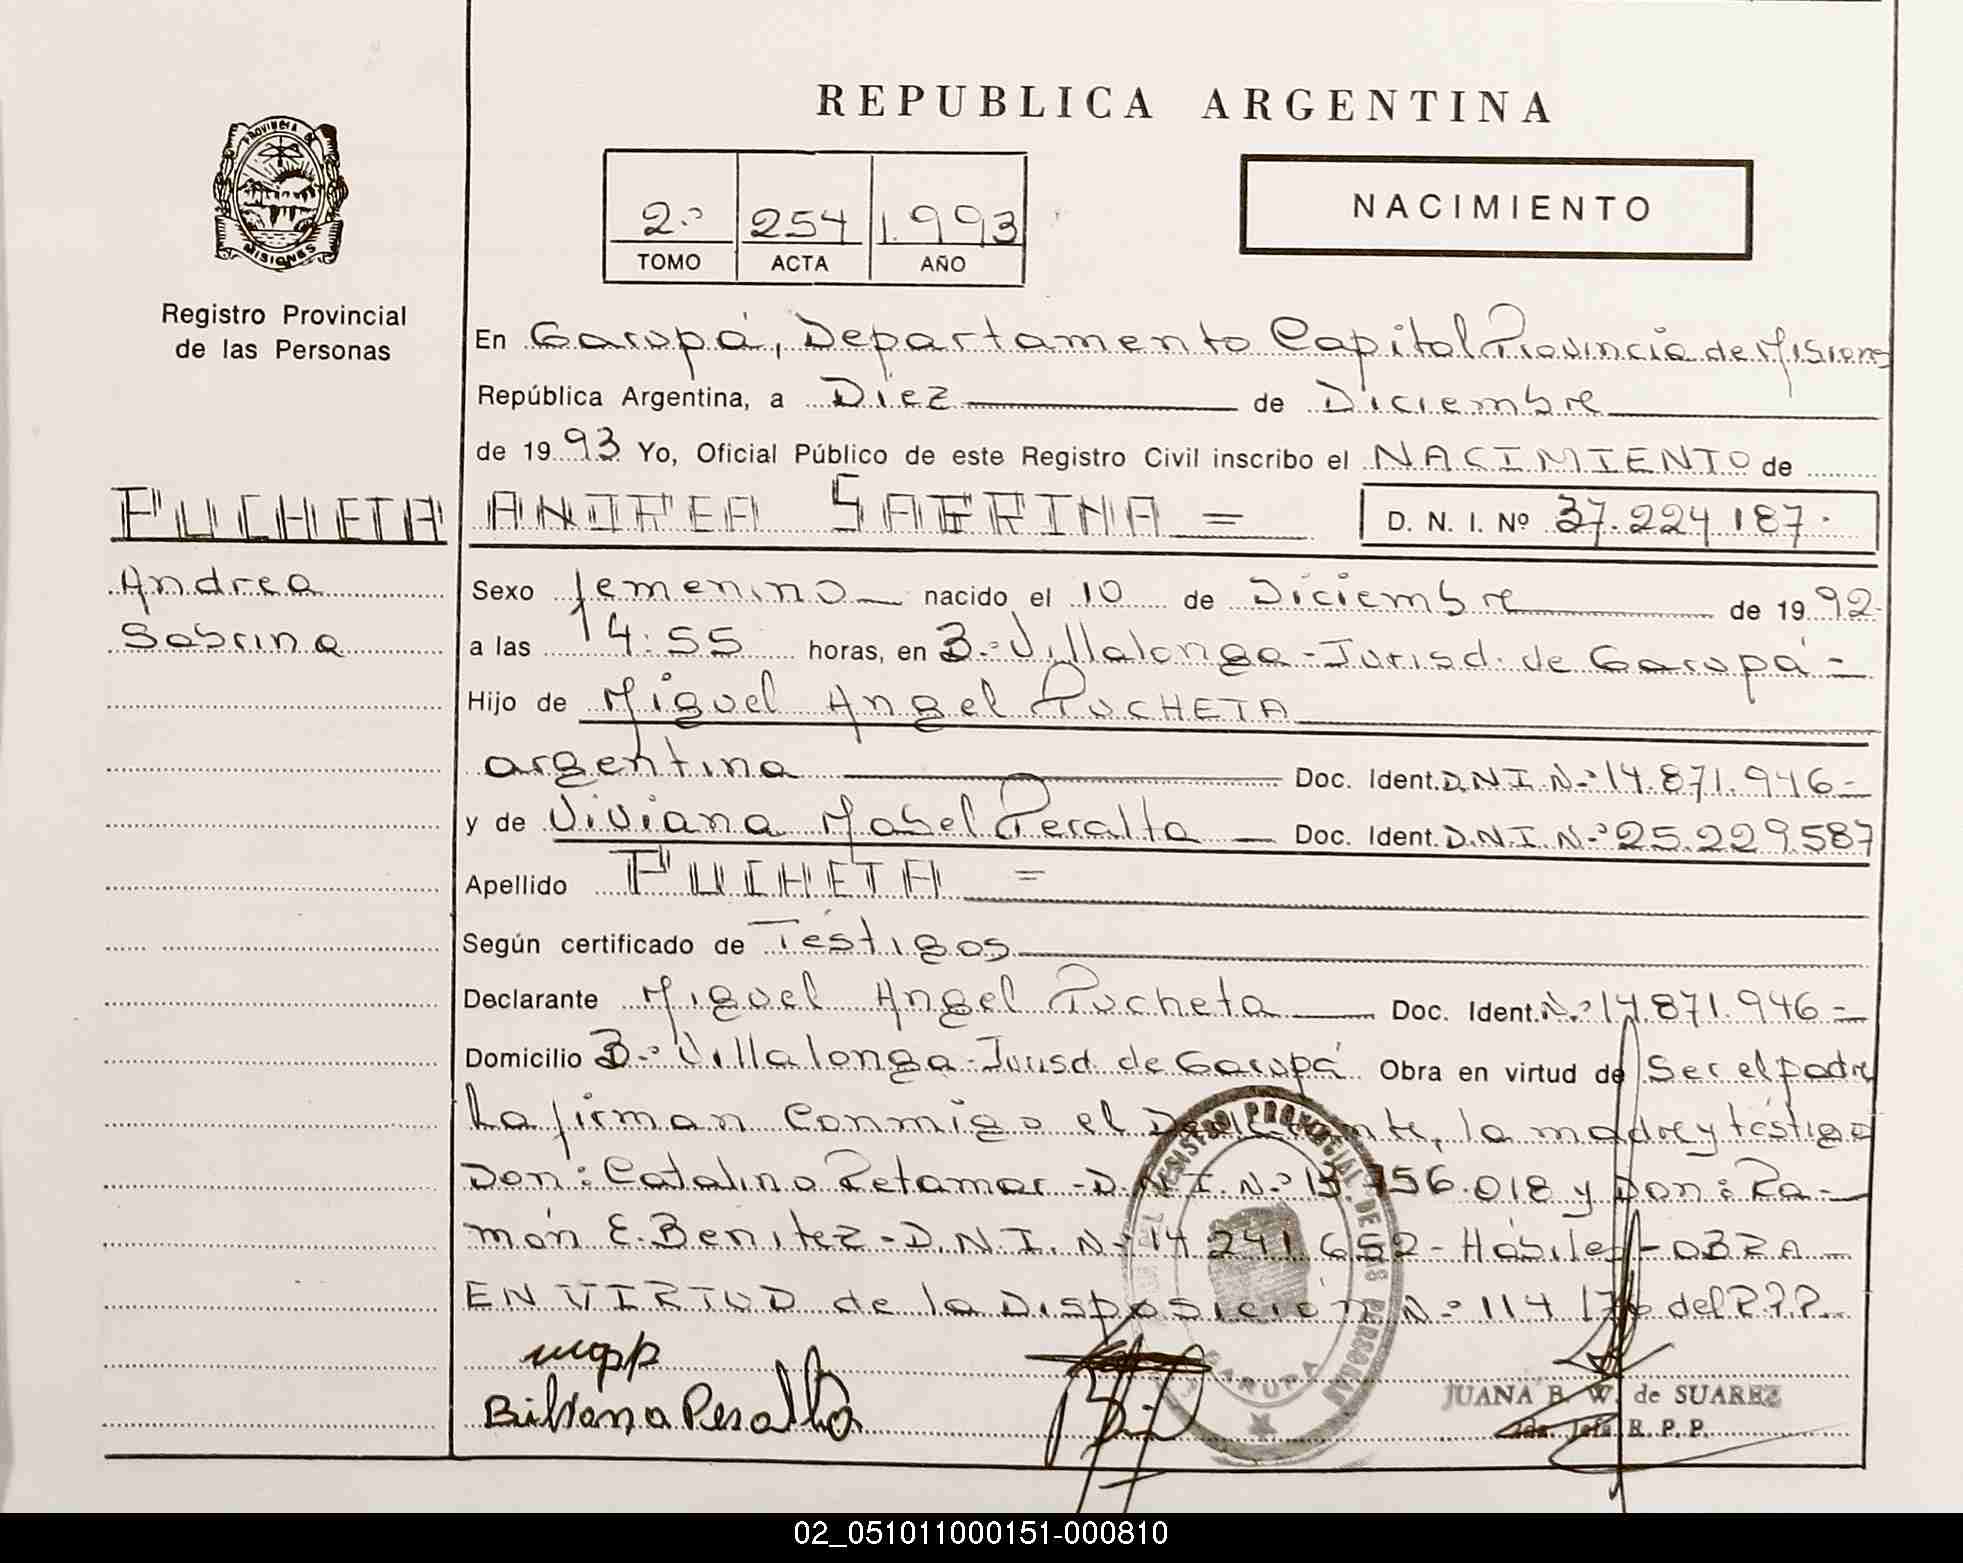 REPUBLICA ARGENTINA
PROVINCIA DE
MISIONES
Registro Provincial
de las Personas
2º 254 1.993
TOMO ACTA AÑO
NACIMIENTO
En Garupá, Departamento Capital Provincia de Misiones
República Argentina, a Diez de Diciembre
de 1993 Yo, Oficial Público de este Registro Civil inscribo el NACIMIENTO de
PUCHETA ANDREA SABRINA = D. N. I. Nº 37.224.187.
Andrea
Sabrina
Sexo femenino nacido el 10 de Diciembre de 1992.
a las 14:55 horas, en Bº Villalonga - Jurisd. de Garupá =
Hijo de Miguel Angel PUCHETA
argentina Doc. Ident. D.N.I. Nº 14.871.946=
y de Viviana Mabel Peralta Doc. Ident. D.N.I. Nº 25.229.587
Apellido PUCHETA =
Según certificado de Téstigos
Declarante Miguel Angel Pucheta Doc. Ident. Nº 14.871.946=
Domicilio Bº Villalonga - Jurisd. de Garupá Obra en virtud de Ser el padre
La firman conmigo el Declarante, la madre y téstigo
Don: Catalino Retamar - D.N.I. Nº 13.756.018 y Don: Ra-
món E. Benitez - D.N.I. Nº 14 241 652 - Hábiles - OBRA
EN VIRTUD de la Disposición Nº 114 del R.P.P.
Peralta
REGISTRO PROVINCIAL DE LAS PERSONAS
GARUPA
JUANA B. W. de SUAREZ
Jefa R. P. P.
02_051011000151-000810